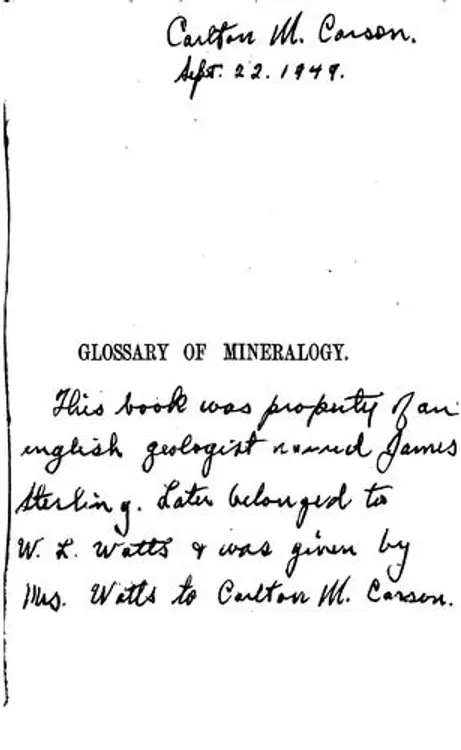 Carlton M. Carson.
Sept. 22. 1949.
GLOSSARY OF MINERALOGY.
This book was property of an
english geologist named James
Sterling. Later belonged to
W. L. Watts & was given by
Mrs. Watts to Carlton M. Carson.